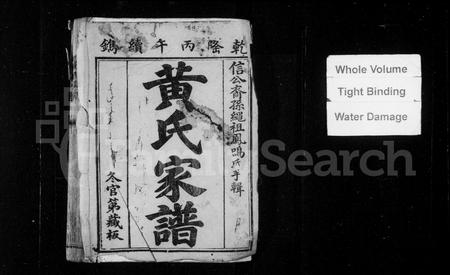 乾隆丙午續鐫
信公裔孫繩祖鳳鳴氏手輯
黃氏家譜
冬官第藏板
Whole Volume
Tight Binding
Water Damage
FamilySearch